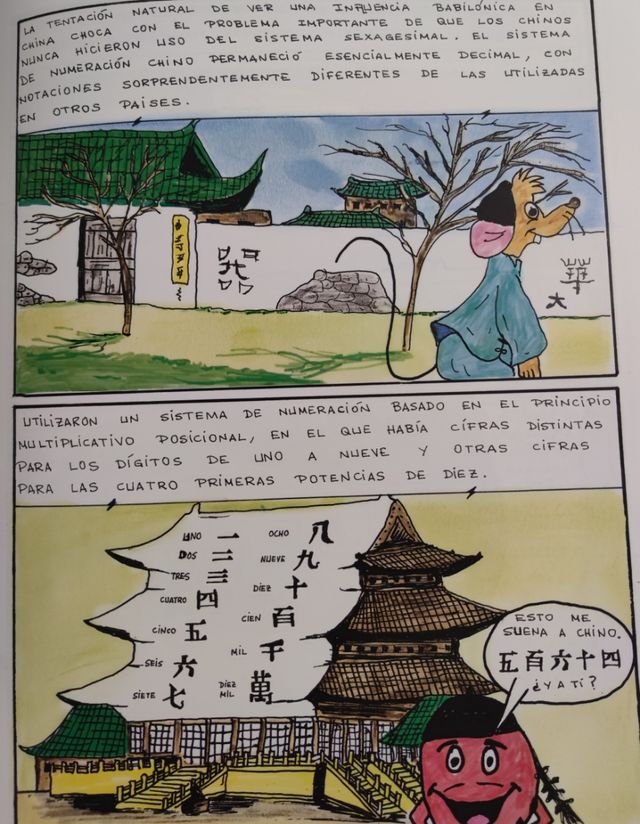 LA TENTACIÓN NATURAL DE VER UNA INFLUENCIA BABILÓNICA EN
CHINA CHOCA CON EL PROBLEMA IMPORTANTE DE QUE LOS CHINOS
NUNCA HICIERON USO DEL SISTEMA SEXAGESIMAL. EL SISTEMA
DE NUMERACIÓN CHINO PERMANECIÓ ESENCIALMENTE DECIMAL, CON
NOTACIONES SORPRENDENTEMENTE DIFERENTES DE LAS UTILIZADAS
EN OTROS PAISES.
大
UTILIZARON UN SISTEMA DE NUMERACIÓN BASADO EN EL PRINCIPIO
MULTIPLICATIVO POSICIONAL, EN EL QUE HABÍA CÍFRAS DISTINTAS
PARA LOS DÍGITOS DE UNO A NUEVE Y OTRAS CIFRAS
PARA LAS CUATRO PRIMERAS POTENCIAS DE DÍEZ.
UNO 一
DOS 二
TRES 三
CUATRO 四
CINCO 五
SEIS 六
SIETE 七
OCHO 八
NUEVE 九
DÍEZ 十
CIEN 百
MIL 千
DÍEZ
MIL 萬
ESTO ME
SUENA A CHINO.
五百六十四
¿Y A TÍ?